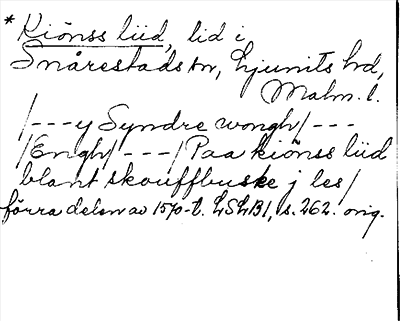 * Kiönss liid, lid i
Snårestads sn, Ljunits hd,
Malm. l.
/---y Syndre wongh/---
/Engh/---/Paa kiönss liid
blant skouffbuske j les/
förra delen av 1570-t. LSLB1, s. 262. orig.